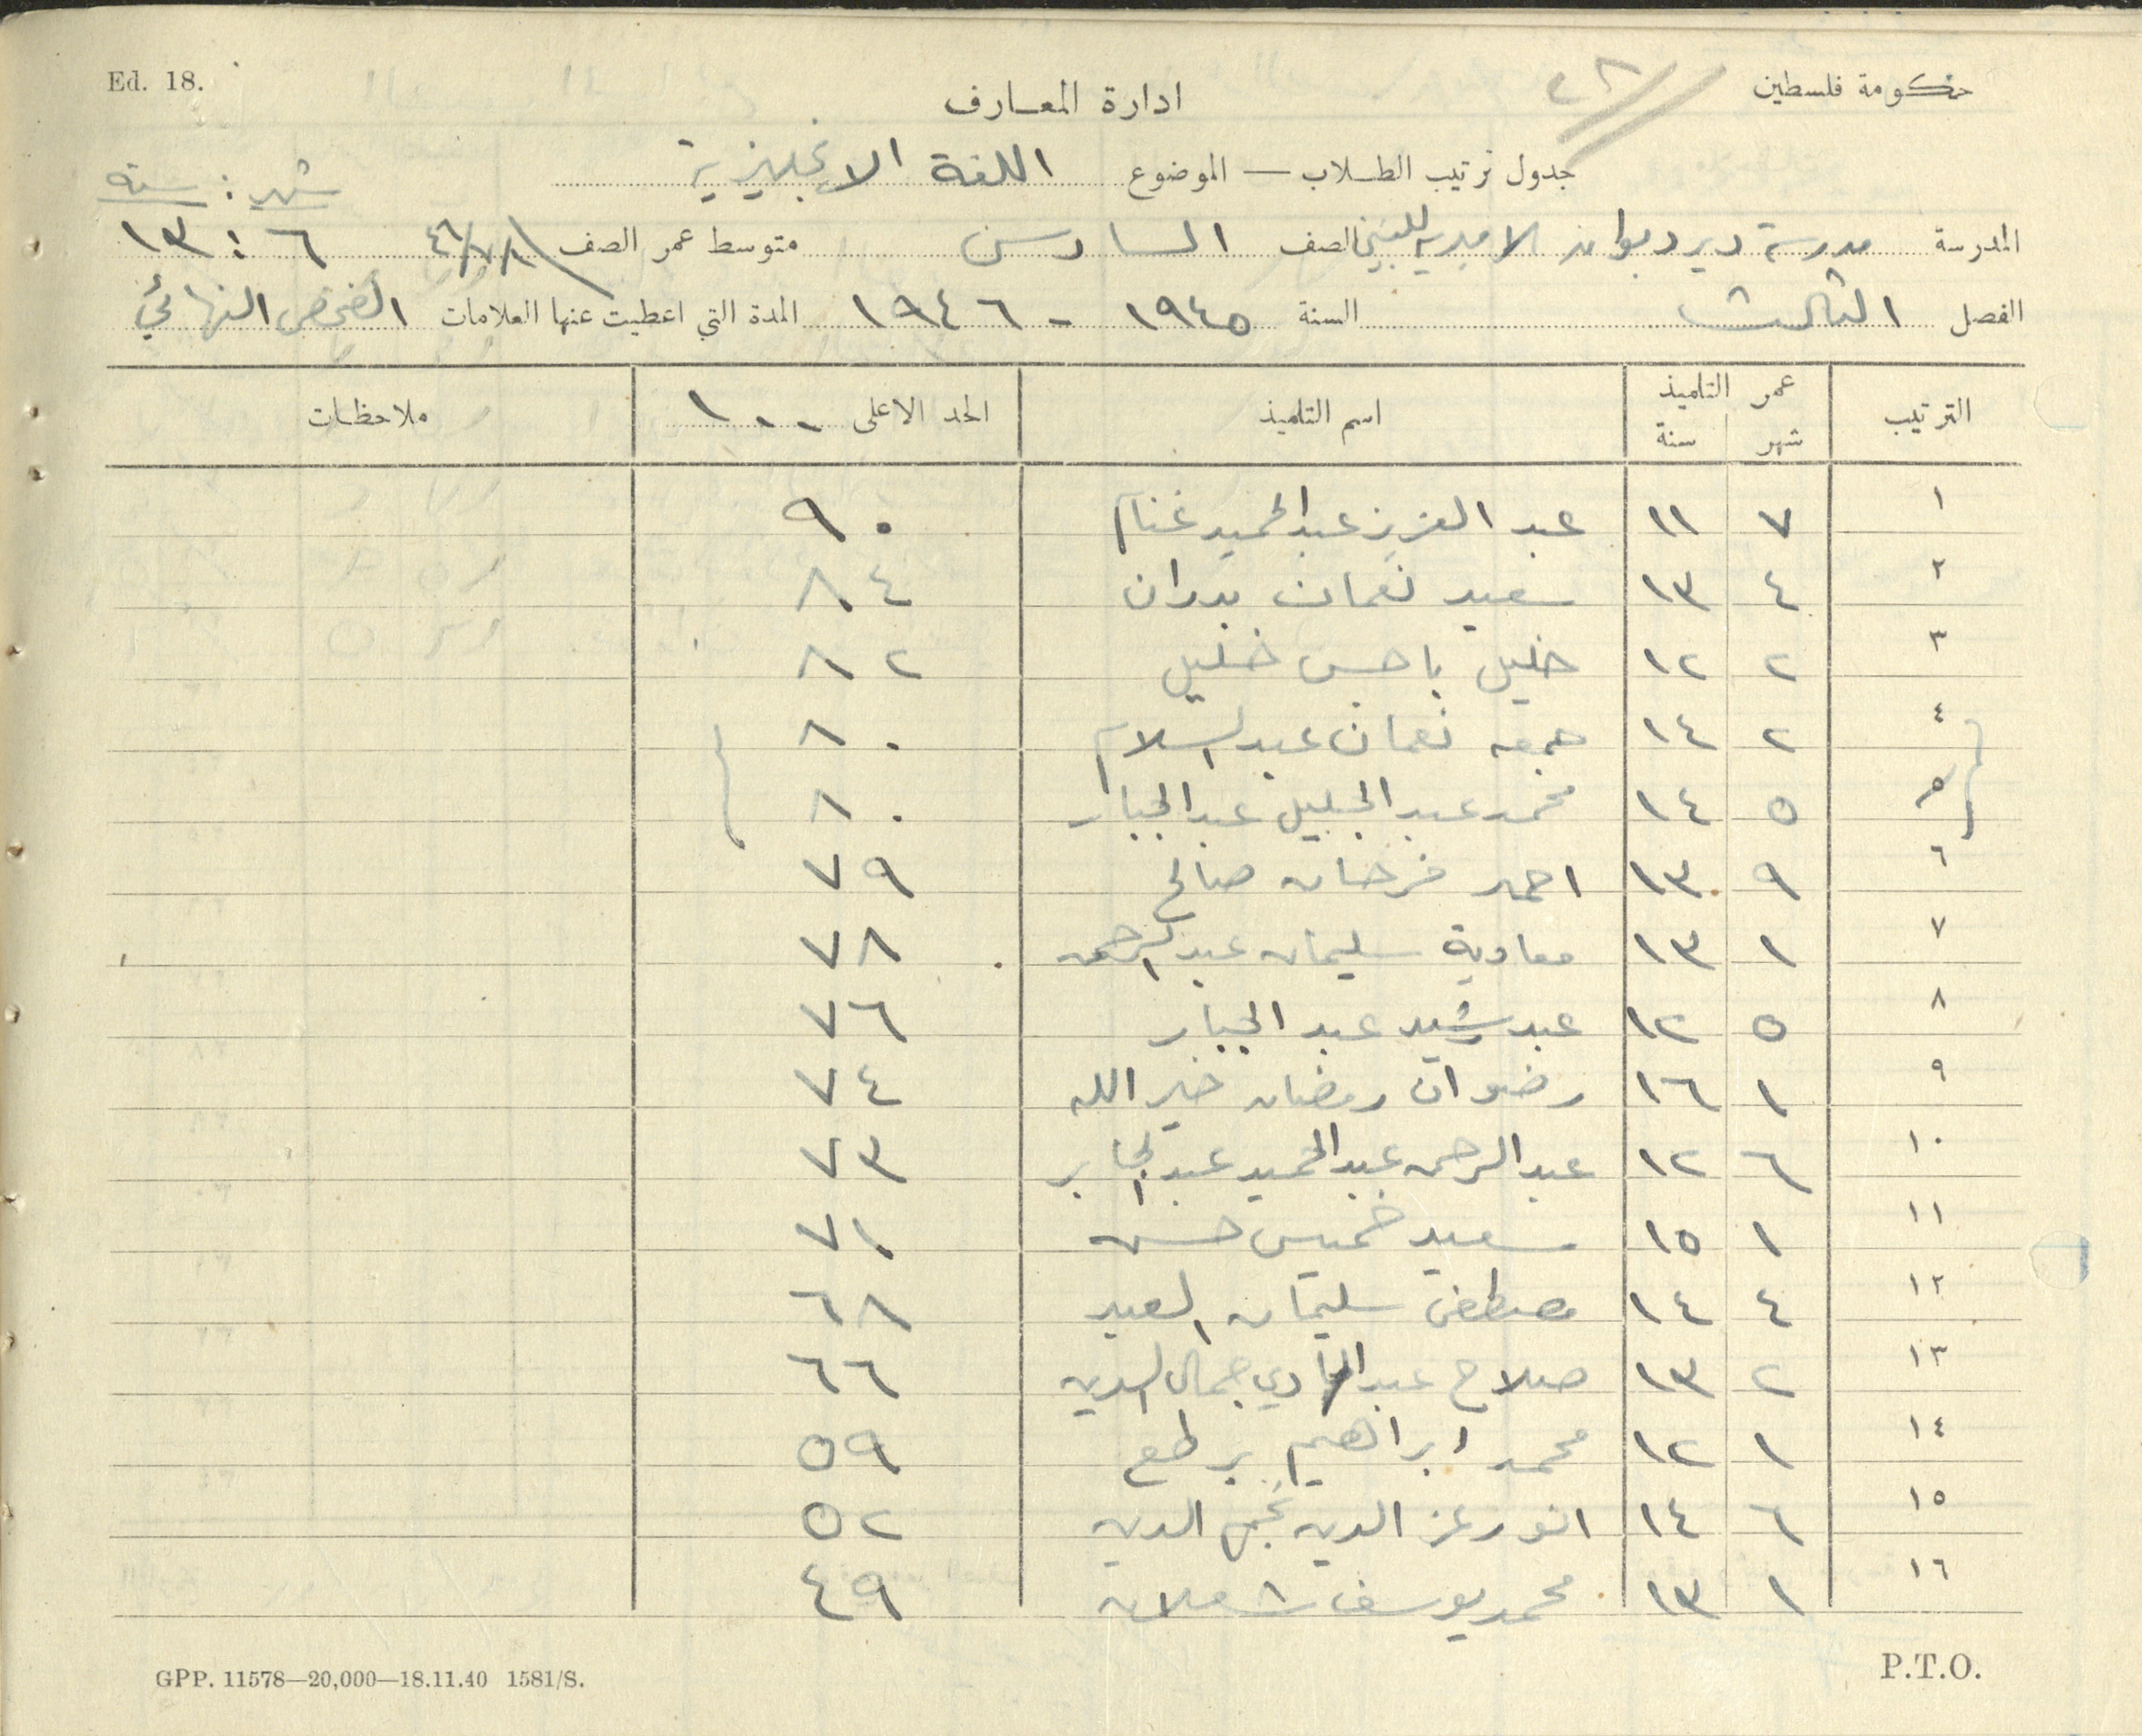 Ed. 18.
حكومة فلسطين
٢٨
ادارة المعارف
جدول ترتيب الطلاب — الموضوع اللغة الانجليزية
شهر : سنة
المدرسة مدرسة ديردبوان الاميرية للبنين الصف السادس متوسط عمر الصف ٤٦/٧/١ ٦ : ١٣
الفصل الثالث السنة ١٩٤٥ - ١٩٤٦ المدة التي اعطيت عنها العلامات الفحص النهائي
الترتيب عمر التلميذ شهر سنة اسم التلميذ الحد الاعلى ١٠٠ ملاحظات
١ ٧ ١١ عبد العزيز عبد الحميد غنام ٩٠
٢ ٤ ١٣ سعيد نعمان بدران ٨٤
٣ ٢ ١٢ خليل باجس خليل ٨٢
٤ ٢ ١٤ جمعه نعمان عبد السلام ٨٠
٥ ٥ ١٤ محمد عبد الجليل عبد الجبار ٨٠
٦ ٩ ١٣ احمد فرحان صالح ٧٩
٧ ١ ١٣ معاوية سليمان عبد الرحمن ٧٨
٨ ٥ ١٢ عبد رشيد عبد الجبار ٧٦
٩ ١ ١٦ رضوان رمضان خير الله ٧٤
١٠ ٦ ١٢ عبد الرحمن عبد الحميد عبد الجابر ٧٣
١١ ١ ١٥ سعيد خميس حسن ٧١
١٢ ٤ ١٤ مصطفى سليمان العبد ٦٨
١٣ ٢ ١٣ صلاح عبد الهادي جمال الدين ٦٦
١٤ ١ ١٢ محمد ابراهيم برطع ٥٩
١٥ ٦ ١٤ انور عز الدين نجم الدين ٥٢
١٦ ١ ١٣ محمد يوسف شعلان ٤٩
GPP. 11578—20,000—18.11.40 1581/S.
P.T.O.